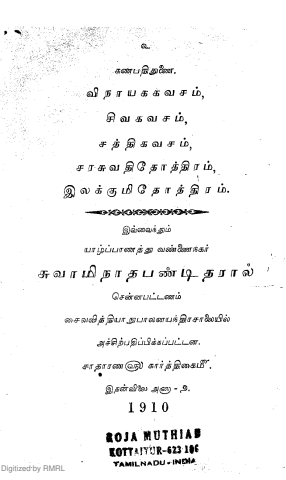 உ
கணபதிதுணை.
விநாயககவசம்,
சிவகவசம்,
சத்திகவசம்,
சரசுவதிதோத்திரம்,
இலக்குமிதோத்திரம்.
இவ்வைந்தும்
யாழ்ப்பாணத்து வண்ணைநகர்
சுவாமிநாதபண்டிதரால்
சென்னபட்டணம்
சைவவித்தியாநுபாலனயந்திரசாலையில்
அச்சிற்பதிப்பிக்கப்பட்டன.
சாதாரண௵ கார்த்திகை௴
இதன்விலை அணா - உ.
1910
ROJA MUTHIAH
KOTTAIYUR-623 106
TAMILNADU - INDIA
Digitized by RMRL